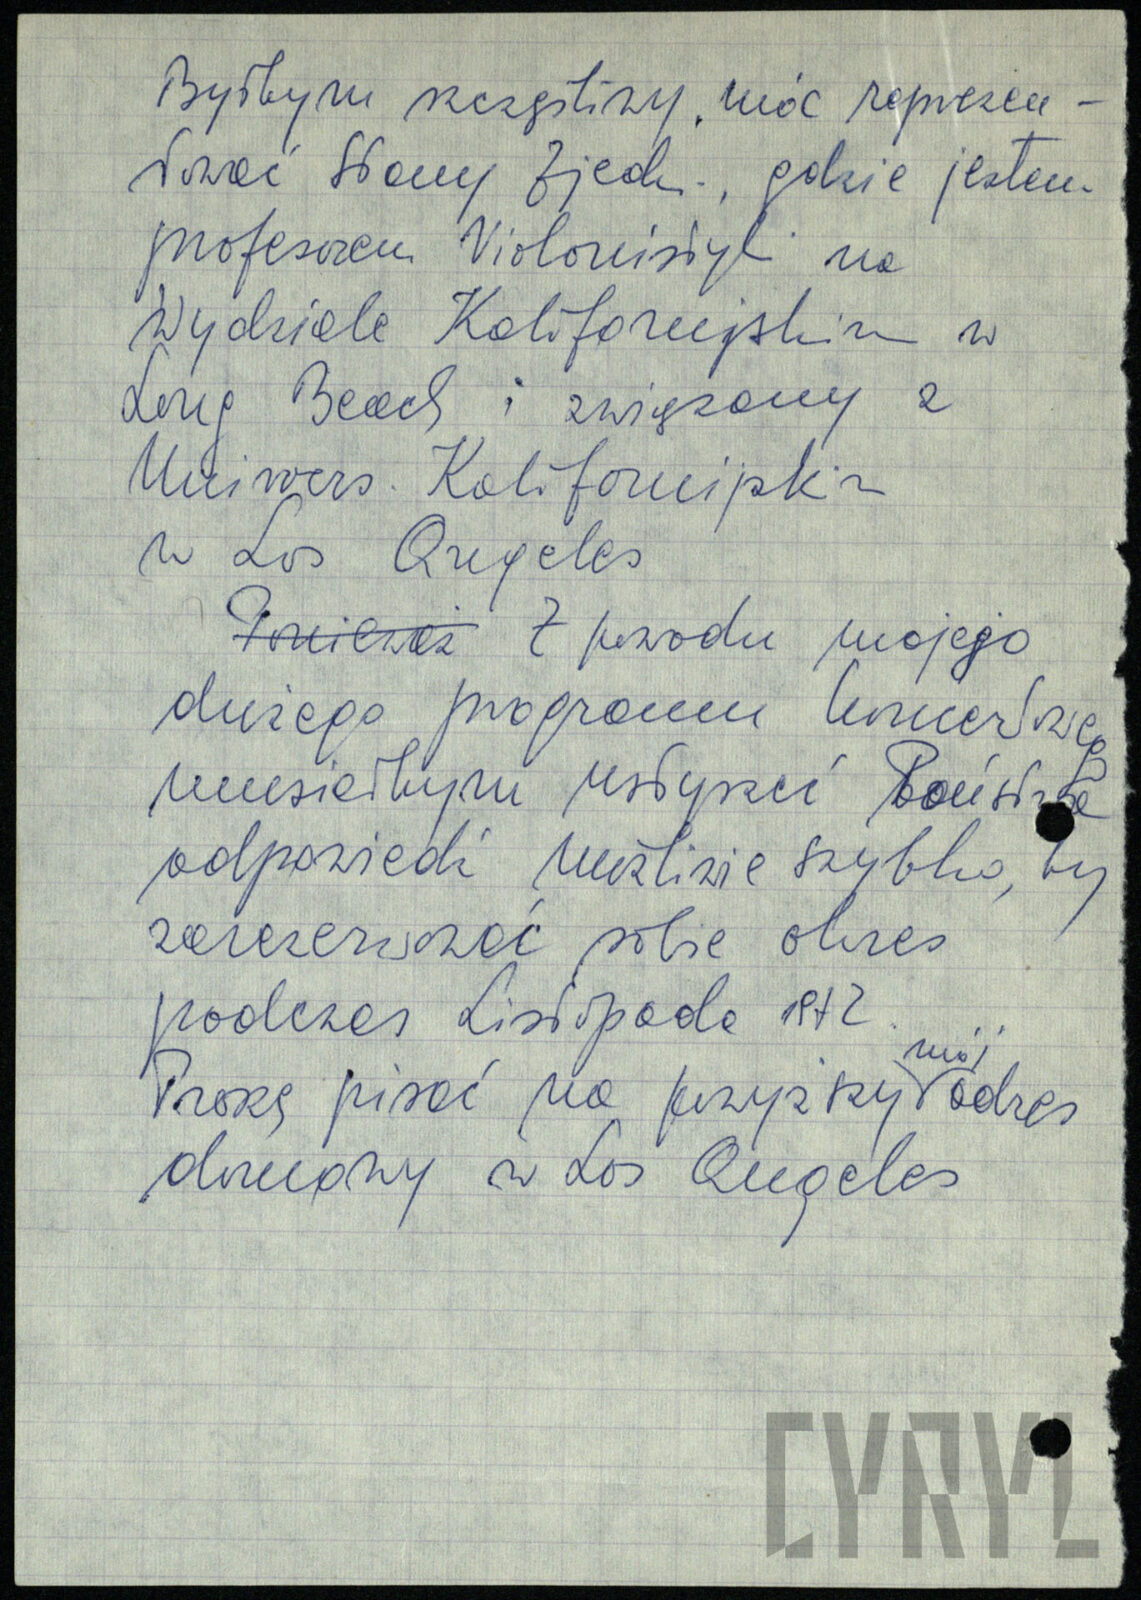 Byłbym szczęśliwy, móc reprezen-
tować Stany Zjedn., gdzie jestem
profesorem Violonistyki na
Wydziale Kalifornijskim w
Long Beach i związany z
Uniwers. Kalifornijskim
w Los Angeles
Ponieważ Z powodu mojego
dużego programu koncertowego
musiałbym usłyszeć Państwa
odpowiedź możliwie szybko, by
zarezerwować sobie okres
podczas Listopada 1972.
mój
Proszę pisać na powyższy adres
domowy w Los Angeles
CYRYL